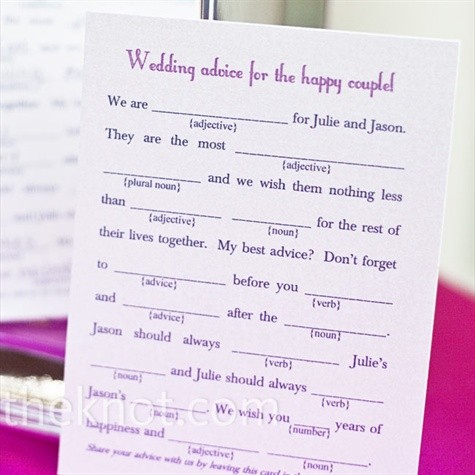 Wedding advice for the happy couple!
We are ____________ for Julie and Jason.
{adjective}
They are the most ____________
{adjective}
____________ and we wish them nothing less
{plural noun}
than ____________ ____________ for the rest of
{adjective} {noun}
their lives together. My best advice? Don't forget
to ____________ before you ____________
{advice} {verb}
and ____________ after the ____________.
{advice} {noun}
Jason should always ____________ Julie's
{verb}
____________ and Julie should always ____________
{noun} {verb}
Jason's ____________. We wish you ____ years of
{noun} {number}
happiness and ____________
{noun}
Share your advice with us by leaving this card in
theknot.com